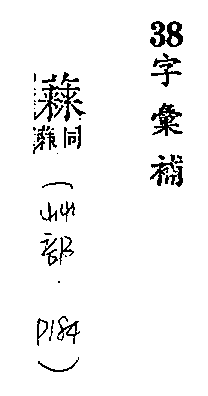 38字彙補
同
(艸部.P184)